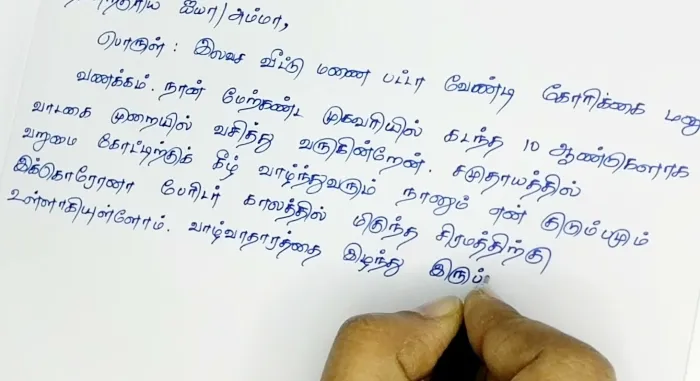 ஐயா/அம்மா,
பொருள் : இலவச வீட்டு மனை பட்டா வேண்டி கோரிக்கை மனு
வணக்கம். நான் மேற்கண்ட முகவரியில் கடந்த 10 ஆண்டுகளாக
வாடகை முறையில் வசித்து வருகின்றேன். சமுதாயத்தில்
வறுமை கோட்டிற்குக் கீழ் வாழ்ந்துவரும் நானும் என் குடும்பமும்
இக்கொரோனா பேரிடர் காலத்தில் மிகுந்த சிரமத்திற்கு
உள்ளாகியுள்ளோம். வாழ்வாதாரத்தை இழந்து இருப்